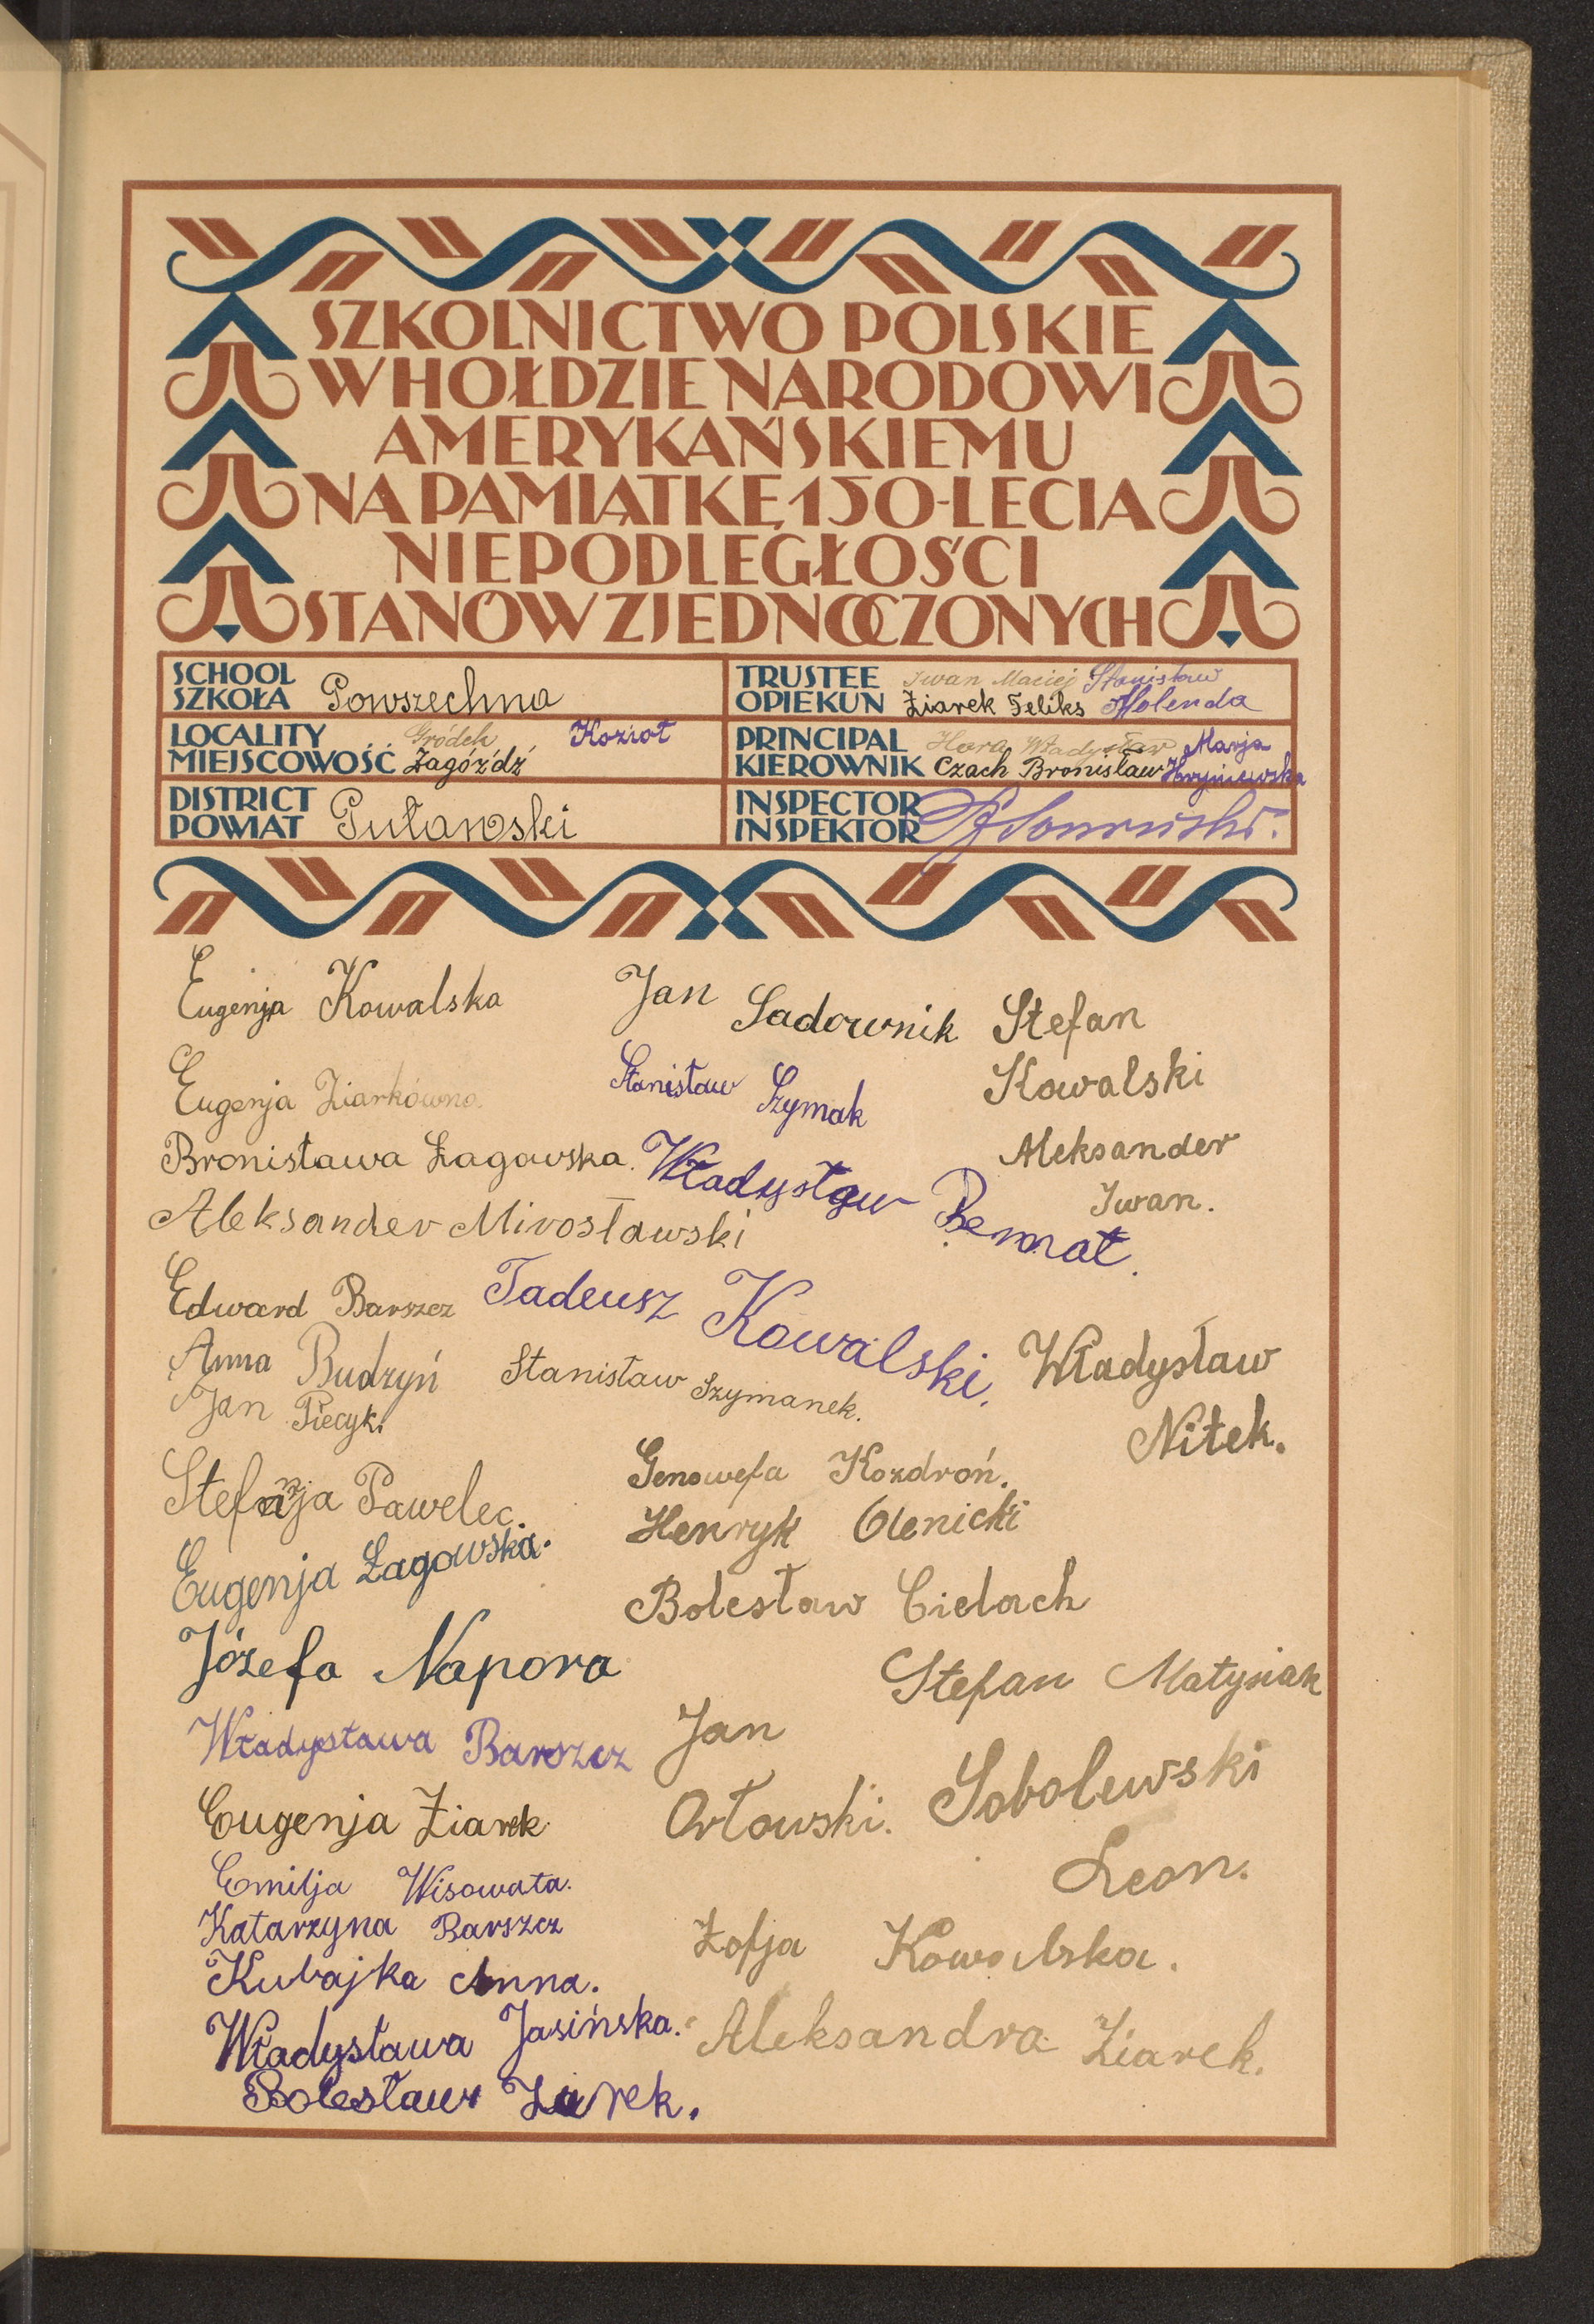 SZKOLNICTWO POLSKIE
W HOŁDZIE NARODOWI
AMERYKAŃSKIEMU
NA PAMIĄTKĘ 150-LECIA
NIEPODLEGŁOŚCI
STANÓW ZJEDNOCZONYCH
SCHOOL
SZKOŁA Powszechna
TRUSTEE Iwan Maciej Stanisław
OPIEKUN Żiarek Feliks Holenda
LOCALITY Gródek, Kozioł
MIEJSCOWOŚĆ Zagóźdź
PRINCIPAL Hora Władysław Marja
KIEROWNIK Czach Bronisław Hryniewska
DISTRICT
POWIAT Puławski
INSPECTOR
INSPEKTOR
Eugenja Kowalska
Eugenja Ziarkówna
Bronisława Łagowska.
Aleksander Mirosławski
Edward Barszcz
Anna Budzyń
Jan Piecyk
Stefanja Pawelec.
Eugenja Łagowska.
Józefa Napora
Władysława Barszcz
Eugenja Żiarek
Emilja Wisowata.
Katarzyna Barszcz
Kubajka Anna.
Władysława Jasińska.
Bolesław Żarek.
Jan Sadownik
Stanisław Szymak
Władysław Bernat.
Tadeusz Kowalski.
Stanisław Szymanek.
Genowefa Kozdroń.
Henryk Olenicki
Bolesław Cielach
Stefan Matysiak
Jan
Orłowski.
Sobolewski
Leon.
Zofja Kowalska.
Aleksandra Żiarek.
Stefan
Kowalski
Aleksander
Iwan.
Władysław
Nitek.